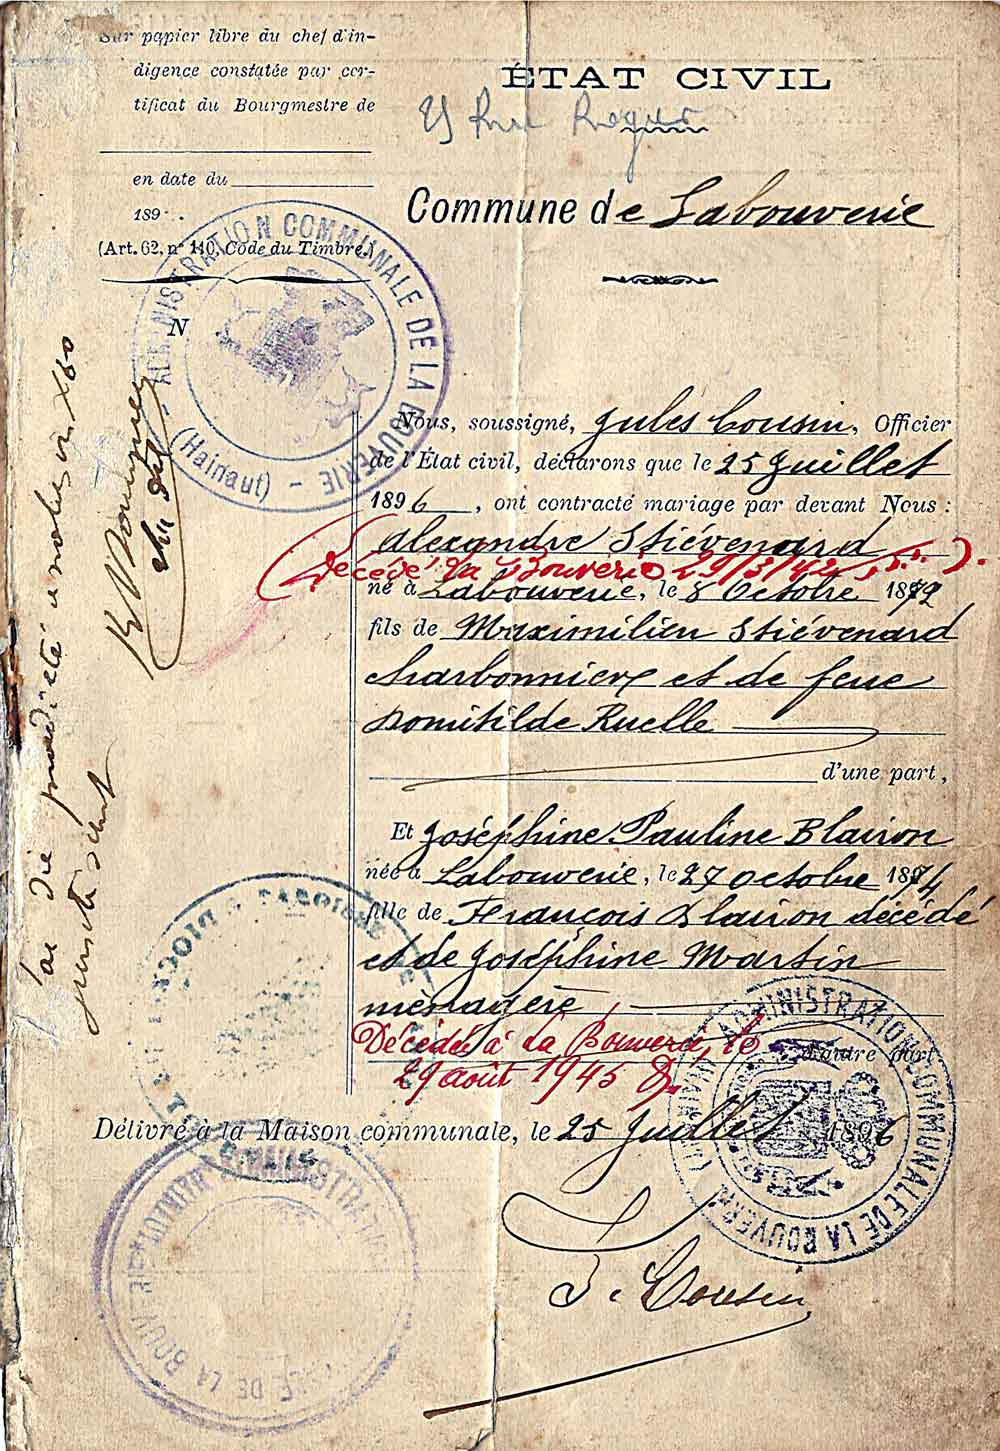 Sur papier libre du chef d'in-
digence constatée par cer-
tificat du Bourgmestre de
en date du
189 .
(Art. 62, n° 110, Code du Timbre.)
N
ÉTAT CIVIL
Rue
Commune de Labouverie
ADMINISTRATION COMMUNALE DE LA BOUVERIE
(Hainaut)
Nous, soussigné, Jules Cousin, Officier
de l'État civil, déclarons que le 25 Juillet
1896, ont contracté mariage par devant Nous :
Alexandre Stiévenard
(Décédé La Bouverie 29/3/42 ).
né à Labouverie, le 8 Octobre 1872
fils de Maximilien Stiévenard
charbonnier et de feue
Domitilde Ruelle
d'une part,
Et Joséphine Pauline Blairon
née à Labouverie, le 27 octobre 1874
fille de François Blairon décédé
et de Joséphine Martin
ménagère
d'autre part
Décédée à La Bouverie, le
29 août 1945
Délivré à la Maison communale, le 25 Juillet 1896
J. Cousin
ADMINISTRATION COMMUNALE DE LA BOUVERIE
ADMINISTRAT
DE LA BOUVERIE